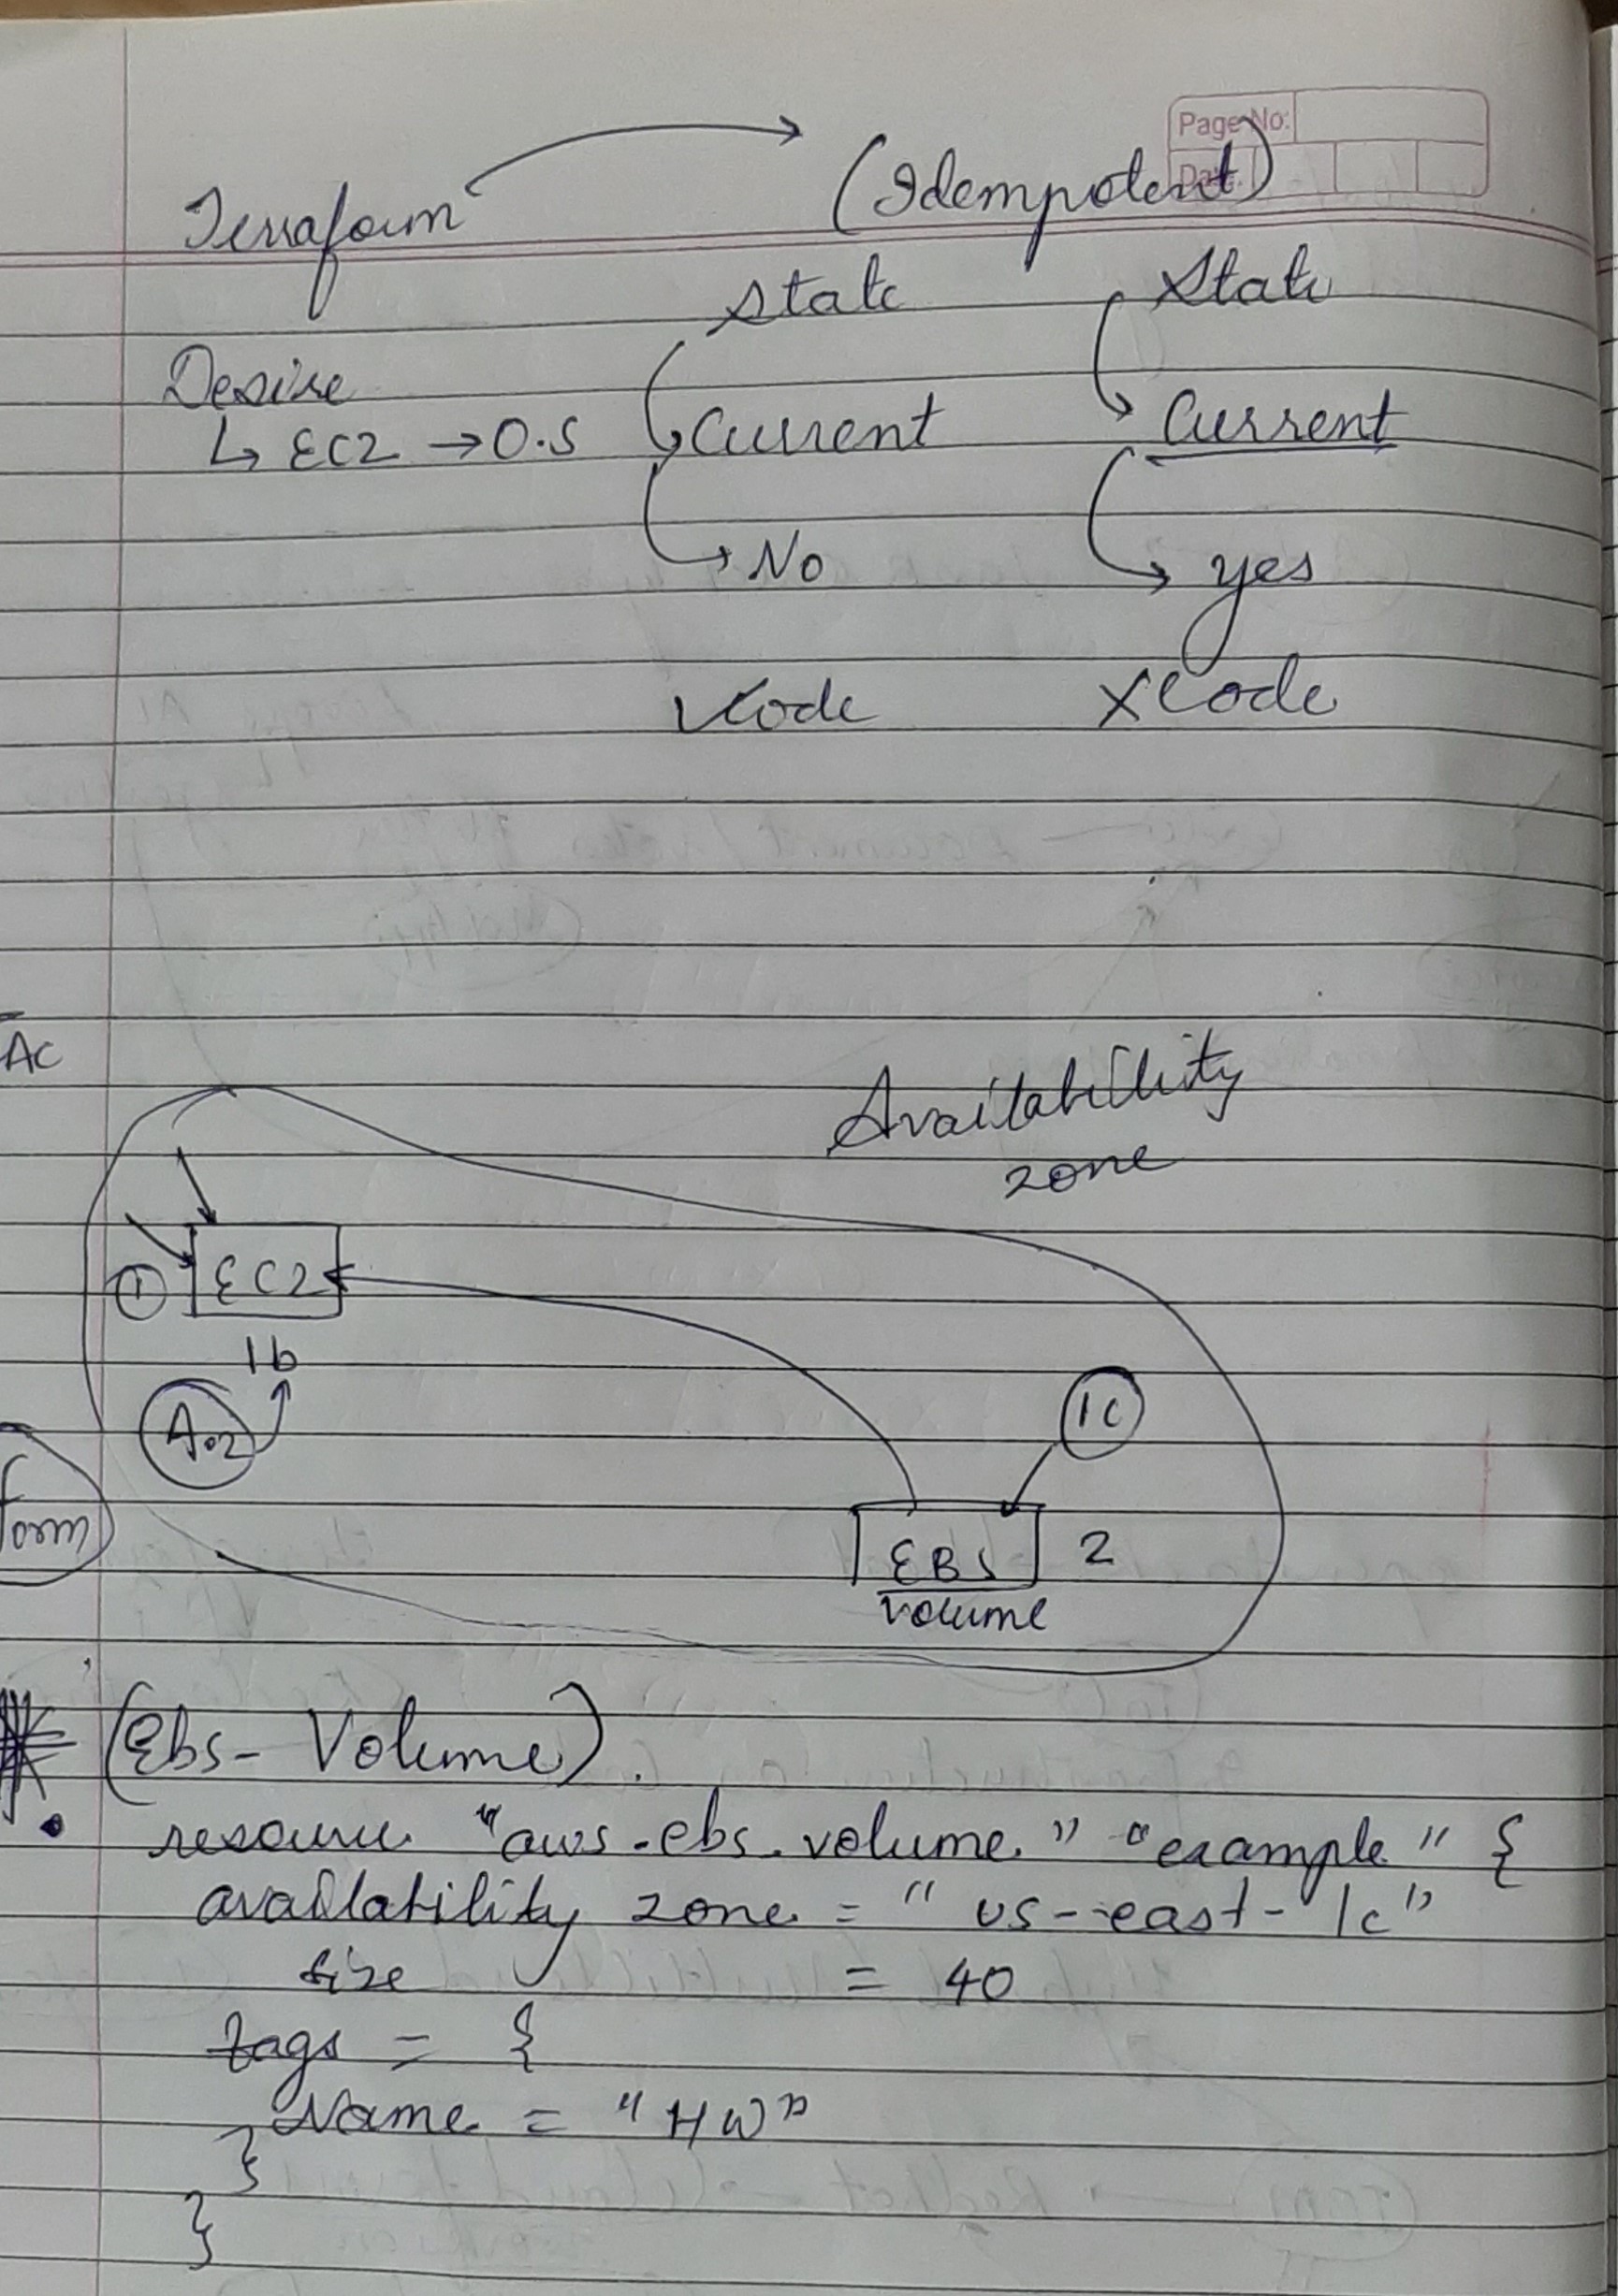 Page No:
Date.
Terraform → (Idempotent)
State State
Desire
↳ EC2 → O.S Current Current
No yes
✓Code XCode
AC
Availability
zone
① EC2
1b
1c
A.z
form
EBS 2
volume
(Ebs- Volume).
• resource "aws-ebs-volume" "example" {
availability zone = "us-east-1c"
size = 40
tags = {
Name = "HW"
}
}